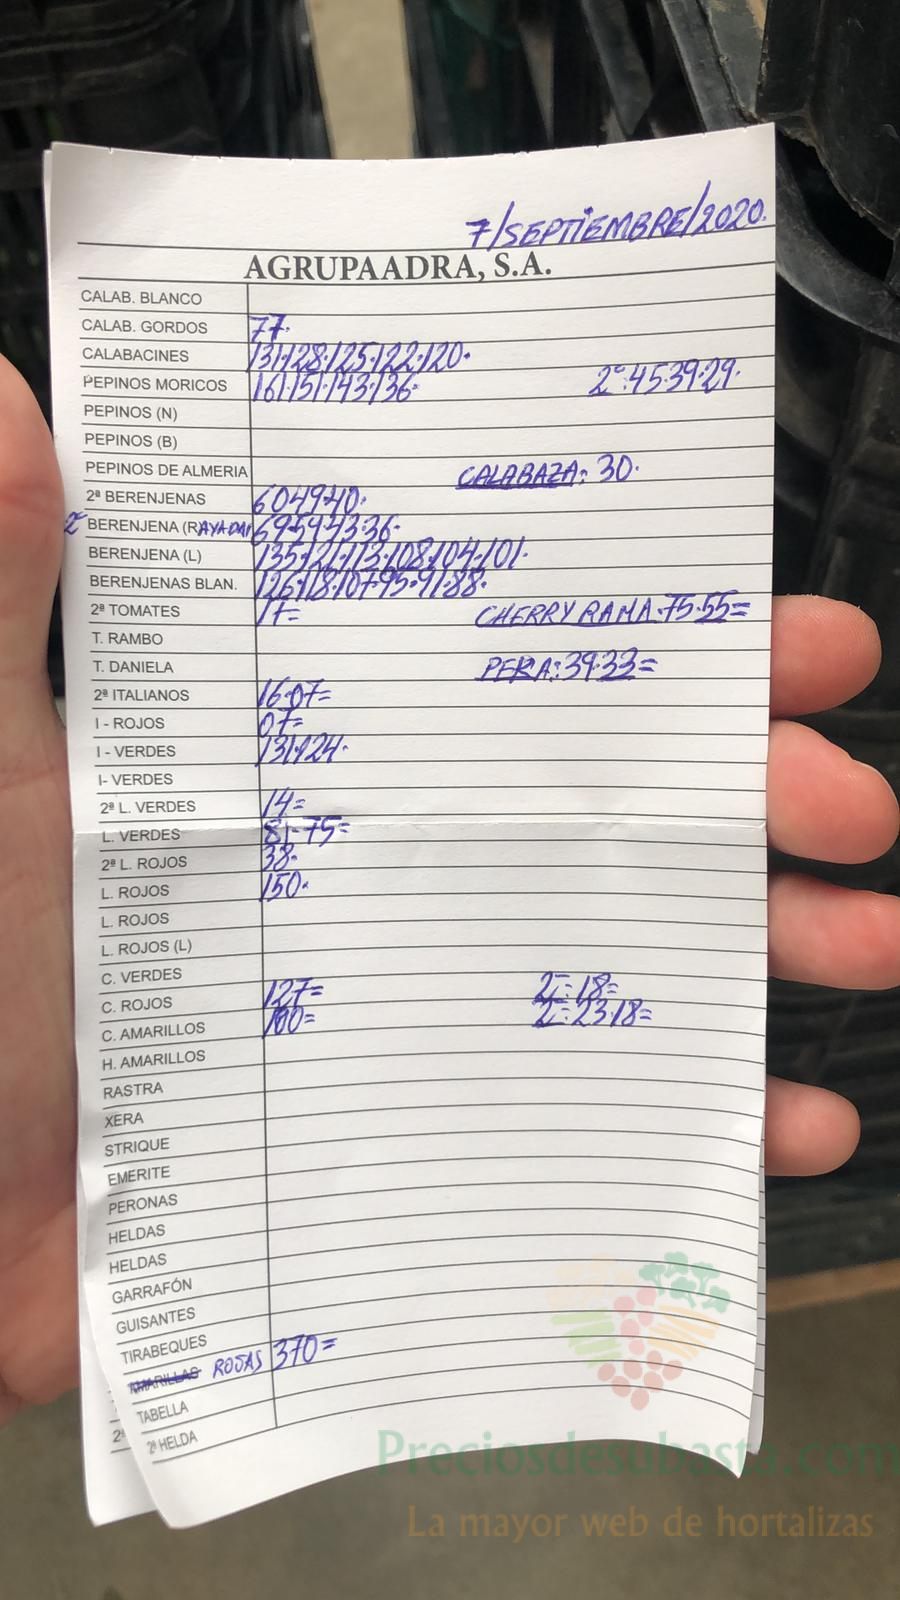 7/SEPTIEMBRE/2020.
AGRUPAADRA, S.A.
CALAB. BLANCO
CALAB. GORDOS 77.
CALABACINES 131·128·125·122·120.
PEPINOS MORICOS 161·151·143·136= 2ª:45·39·29.
PEPINOS (N)
PEPINOS (B)
PEPINOS DE ALMERIA CALABAZA: 30.
2ª BERENJENAS 60·49·40.
2ª BERENJENA (RAYADA) 69·59·43·36.
BERENJENA (L) 135·121·113·108·104·101.
BERENJENAS BLAN. 126·118·107·95·91·88.
2ª TOMATES 17= CHERRY RAMA·75·55=
T. RAMBO
T. DANIELA PERA:39·33=
2ª ITALIANOS 16·07=
I - ROJOS 07=
I - VERDES 131·124.
I- VERDES
2ª L. VERDES 14=
L. VERDES 81-75=
2ª L. ROJOS 38.
L. ROJOS 150.
L. ROJOS
L. ROJOS (L)
C. VERDES
C. ROJOS 127= 2ª=18=
C. AMARILLOS 100= 2ª=23·18=
H. AMARILLOS
RASTRA
XERA
STRIQUE
EMERITE
PERONAS
HELDAS
HELDAS
GARRAFÓN
GUISANTES
TIRABEQUES
AMARILLAS ROJAS 370=
TABELLA
2ª HELDA
2ª
Preciosdesubasta.com
La mayor web de hortalizas